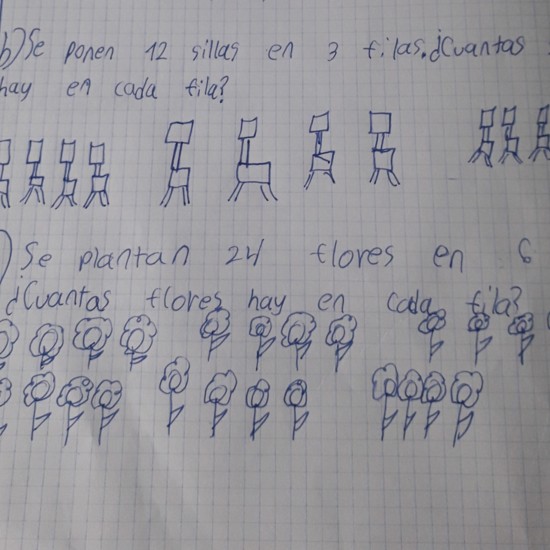 b) Se ponen 12 sillas en 3 filas. ¿Cuantas
hay en cada fila?
) Se plantan 24 flores en 6
¿Cuantas flores hay en cada fila?